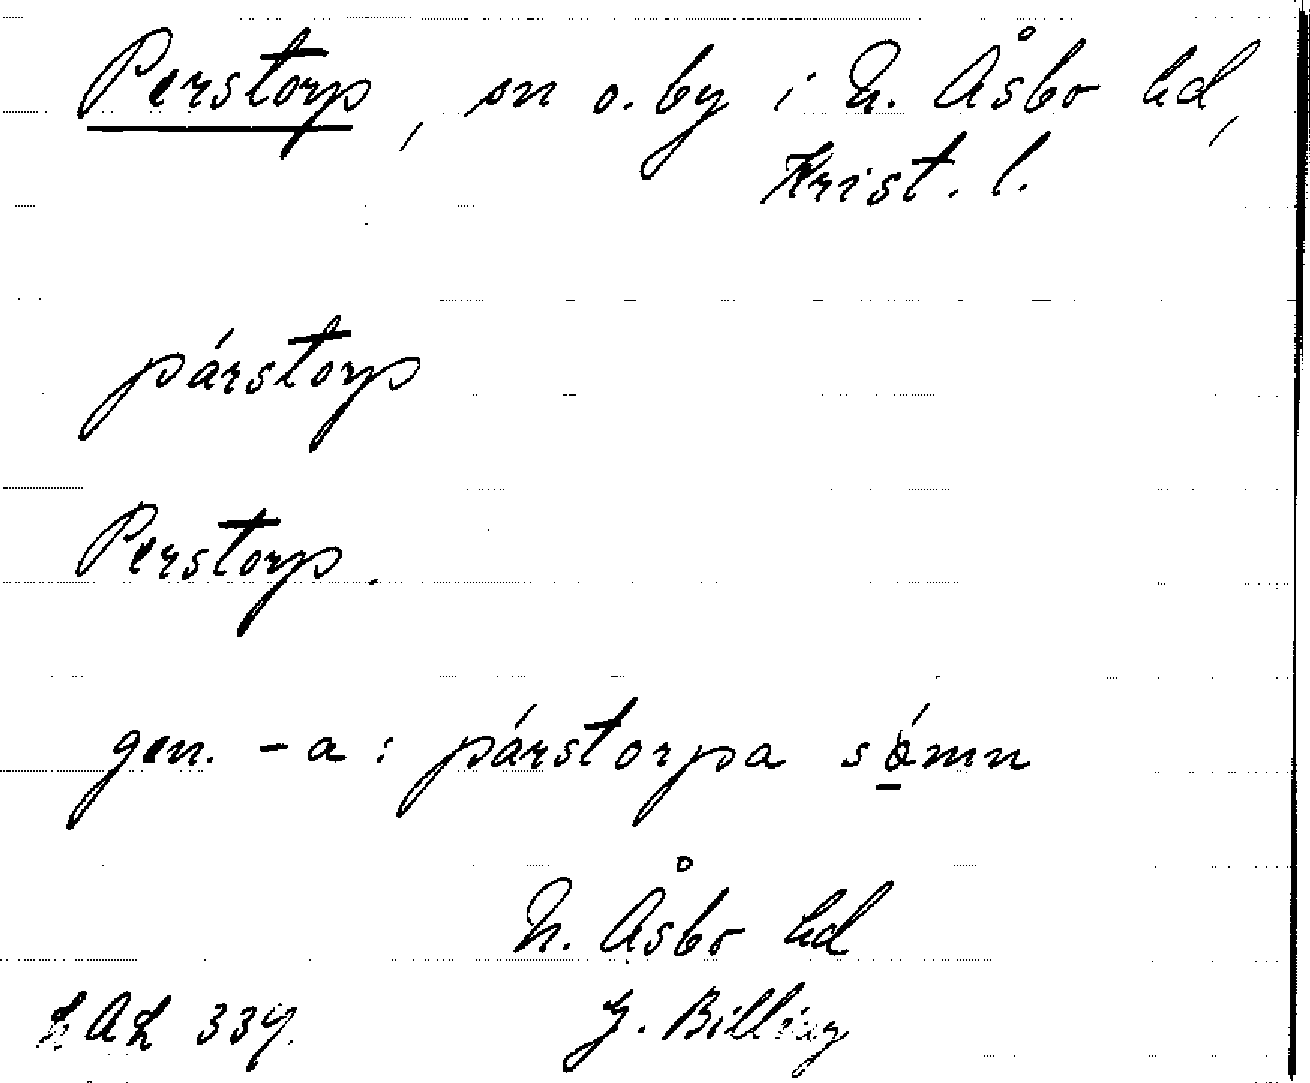 Perstorp, sn o. by i N. Åsbo hd,
Krist. l.
párstorp
Perstorp.
gen. -a : párstorpa sómn
N. Åsbo hd
LAL 339. G. Billing